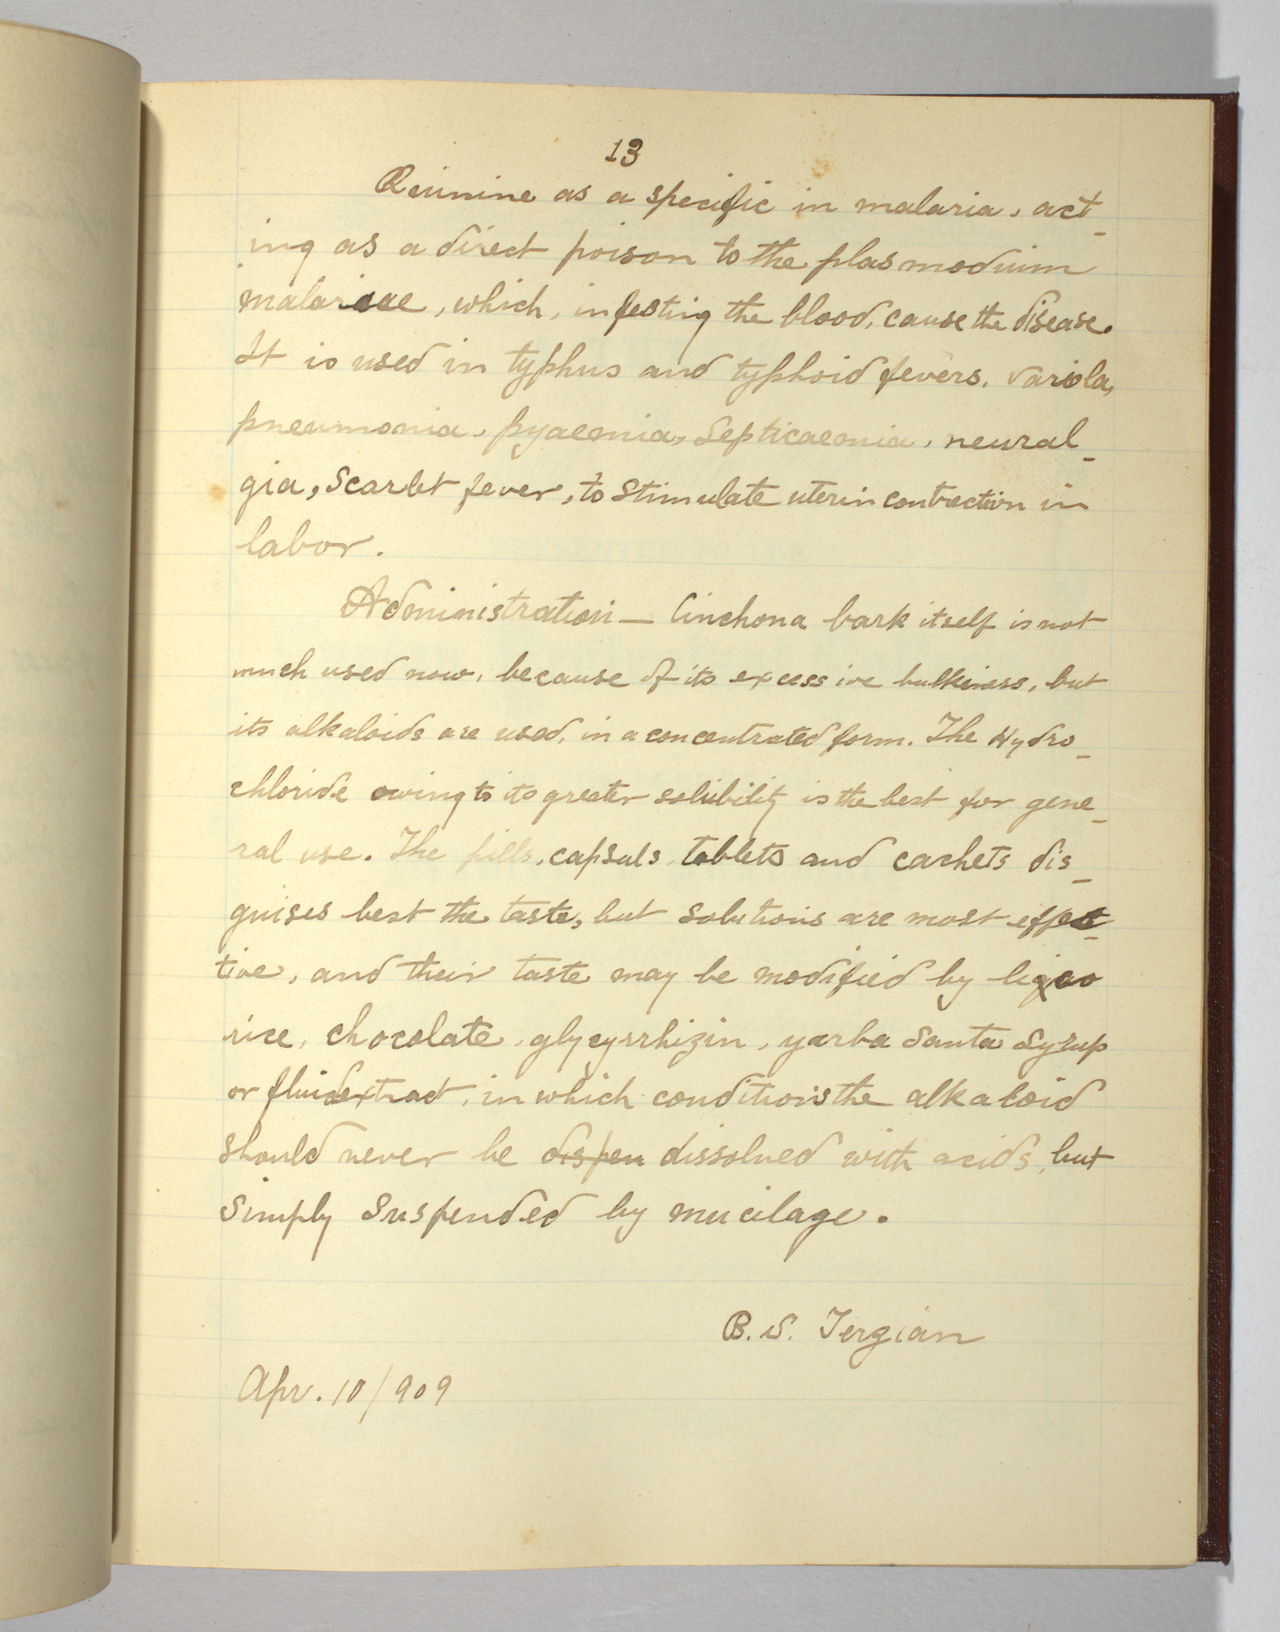 13
Quinine as a specific in malaria, act-
ing as a direct poison to the plasmodium
malariae, which, infesting the blood, cause the disease.
It is used in typhus and typhoid fevers, variola,
pneumonia, pyaemia, Septicaemia, neural-
gia, Scarlet fever, to stimulate uterin contraction in
labor.
Administration — Cinchona bark itself is not
much used now, because of its excessive bulkiness, but
its alkaloids are used, in a concentrated form. The Hydro-
chloride owing to its greater solubility is the best for gene-
ral use. The pills, capsuls, tablets and cachets dis-
guises best the taste, but solutions are most effec-
tive, and their taste may be modified by liquo
rice, chocolate, glycyrrhizin, yerba Santa Syrup
or fluidextract, in which conditions the alkaloid
should never be dispen dissolved with acids, but
simply suspended by mucilage.
B. S. Terzian
Apr. 10/909